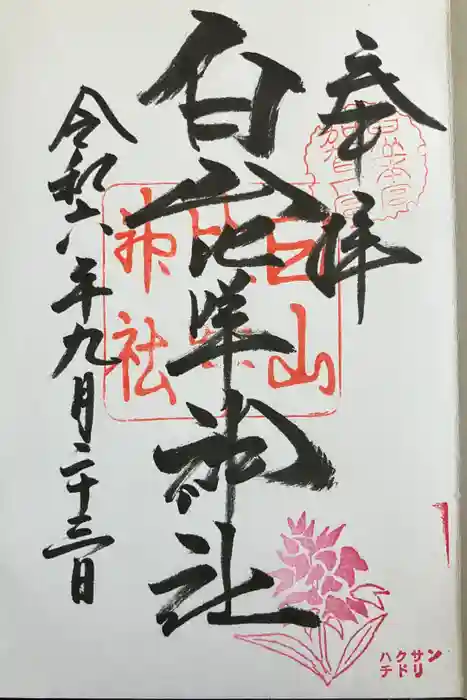 奉拝
白山比咩神社
令和六年九月二十三日
白山
比咩
神社
ハクサン
チドリ